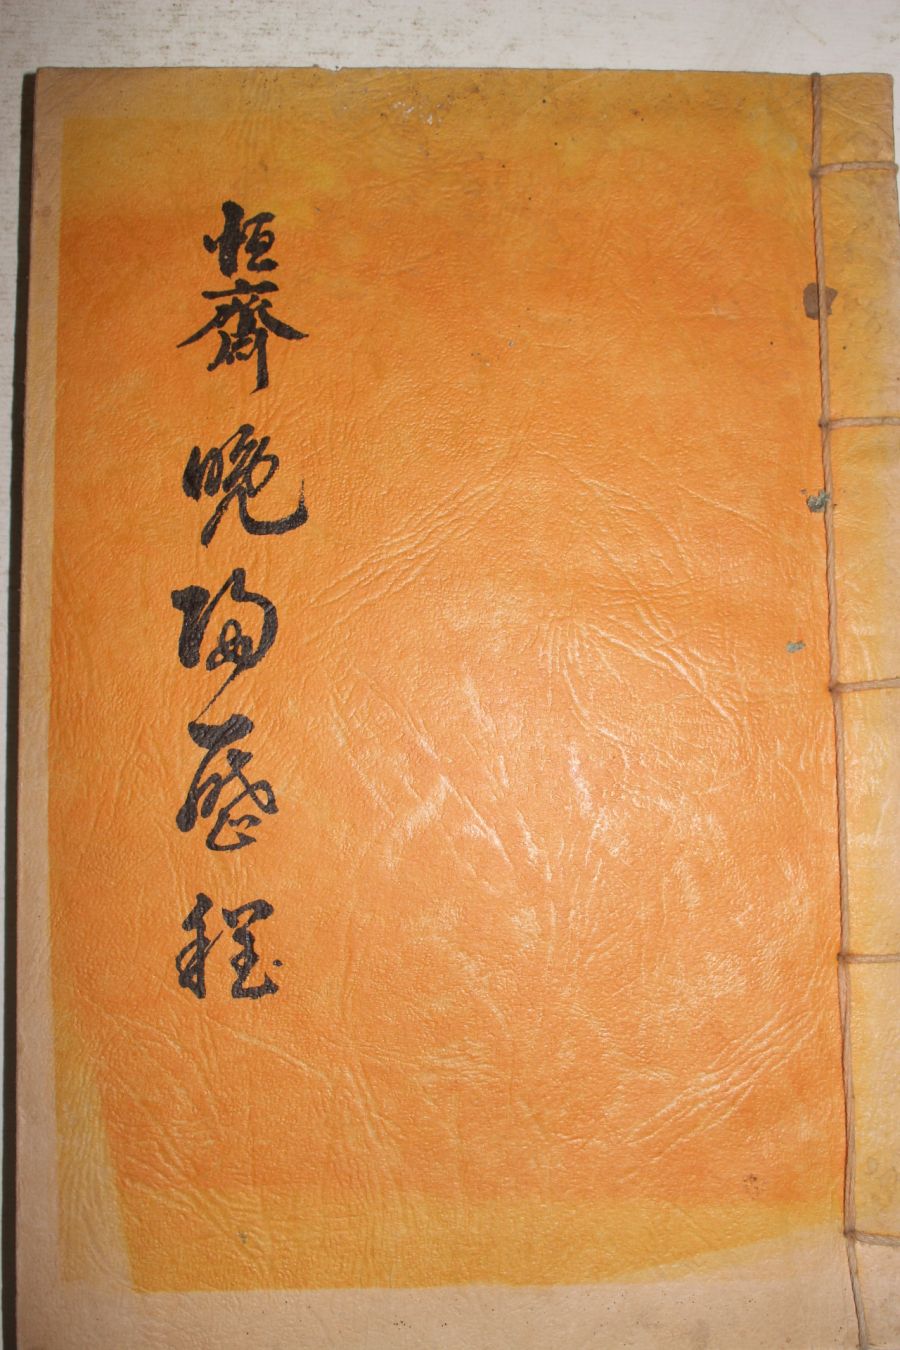 恒齋晩陶歷程